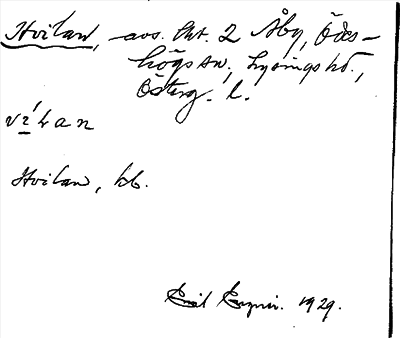 Hvilan, avs. Skt. 2 Åby, Ödes-
högs sn, Lysings hd.,
Österg. l.
vílan
Hvilan, kb.
Emil 1929.